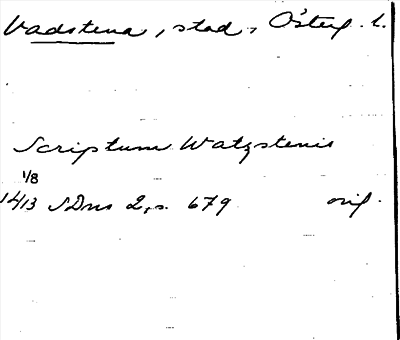 Vadstena, stad, Österg. l.
Scriptum Watzstenis
1/8
1413 SDns 2, s. 679 orig.